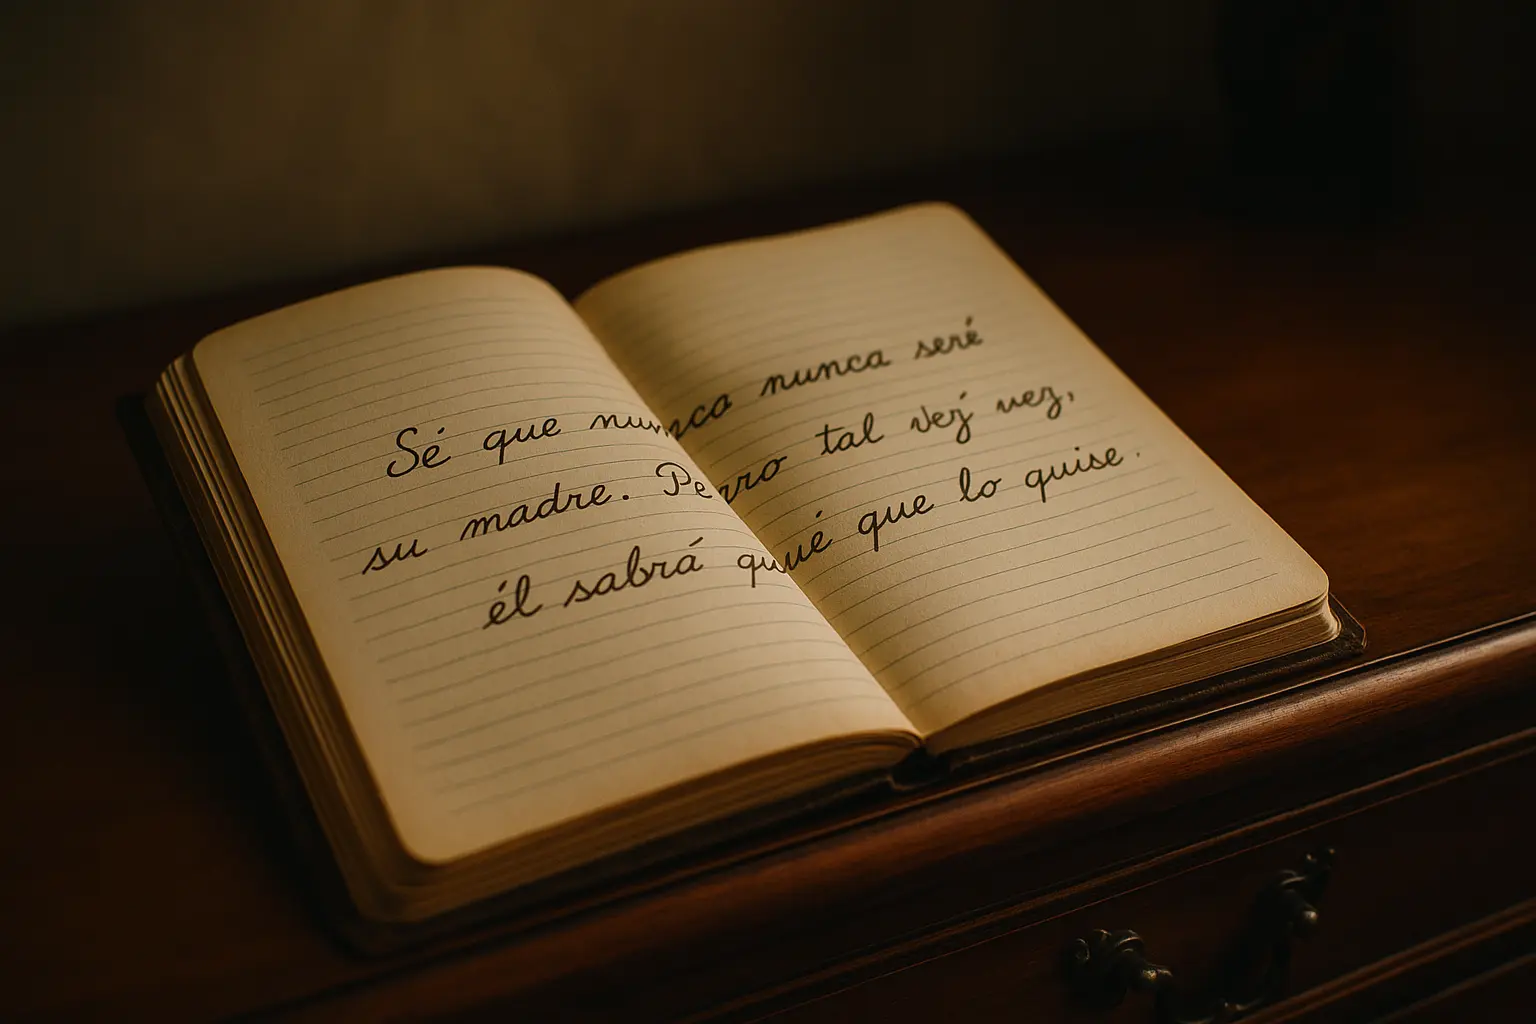 Sé que nunca nunca seré
su madre. Perro tal vej vez,
él sabrá quué que lo quise.